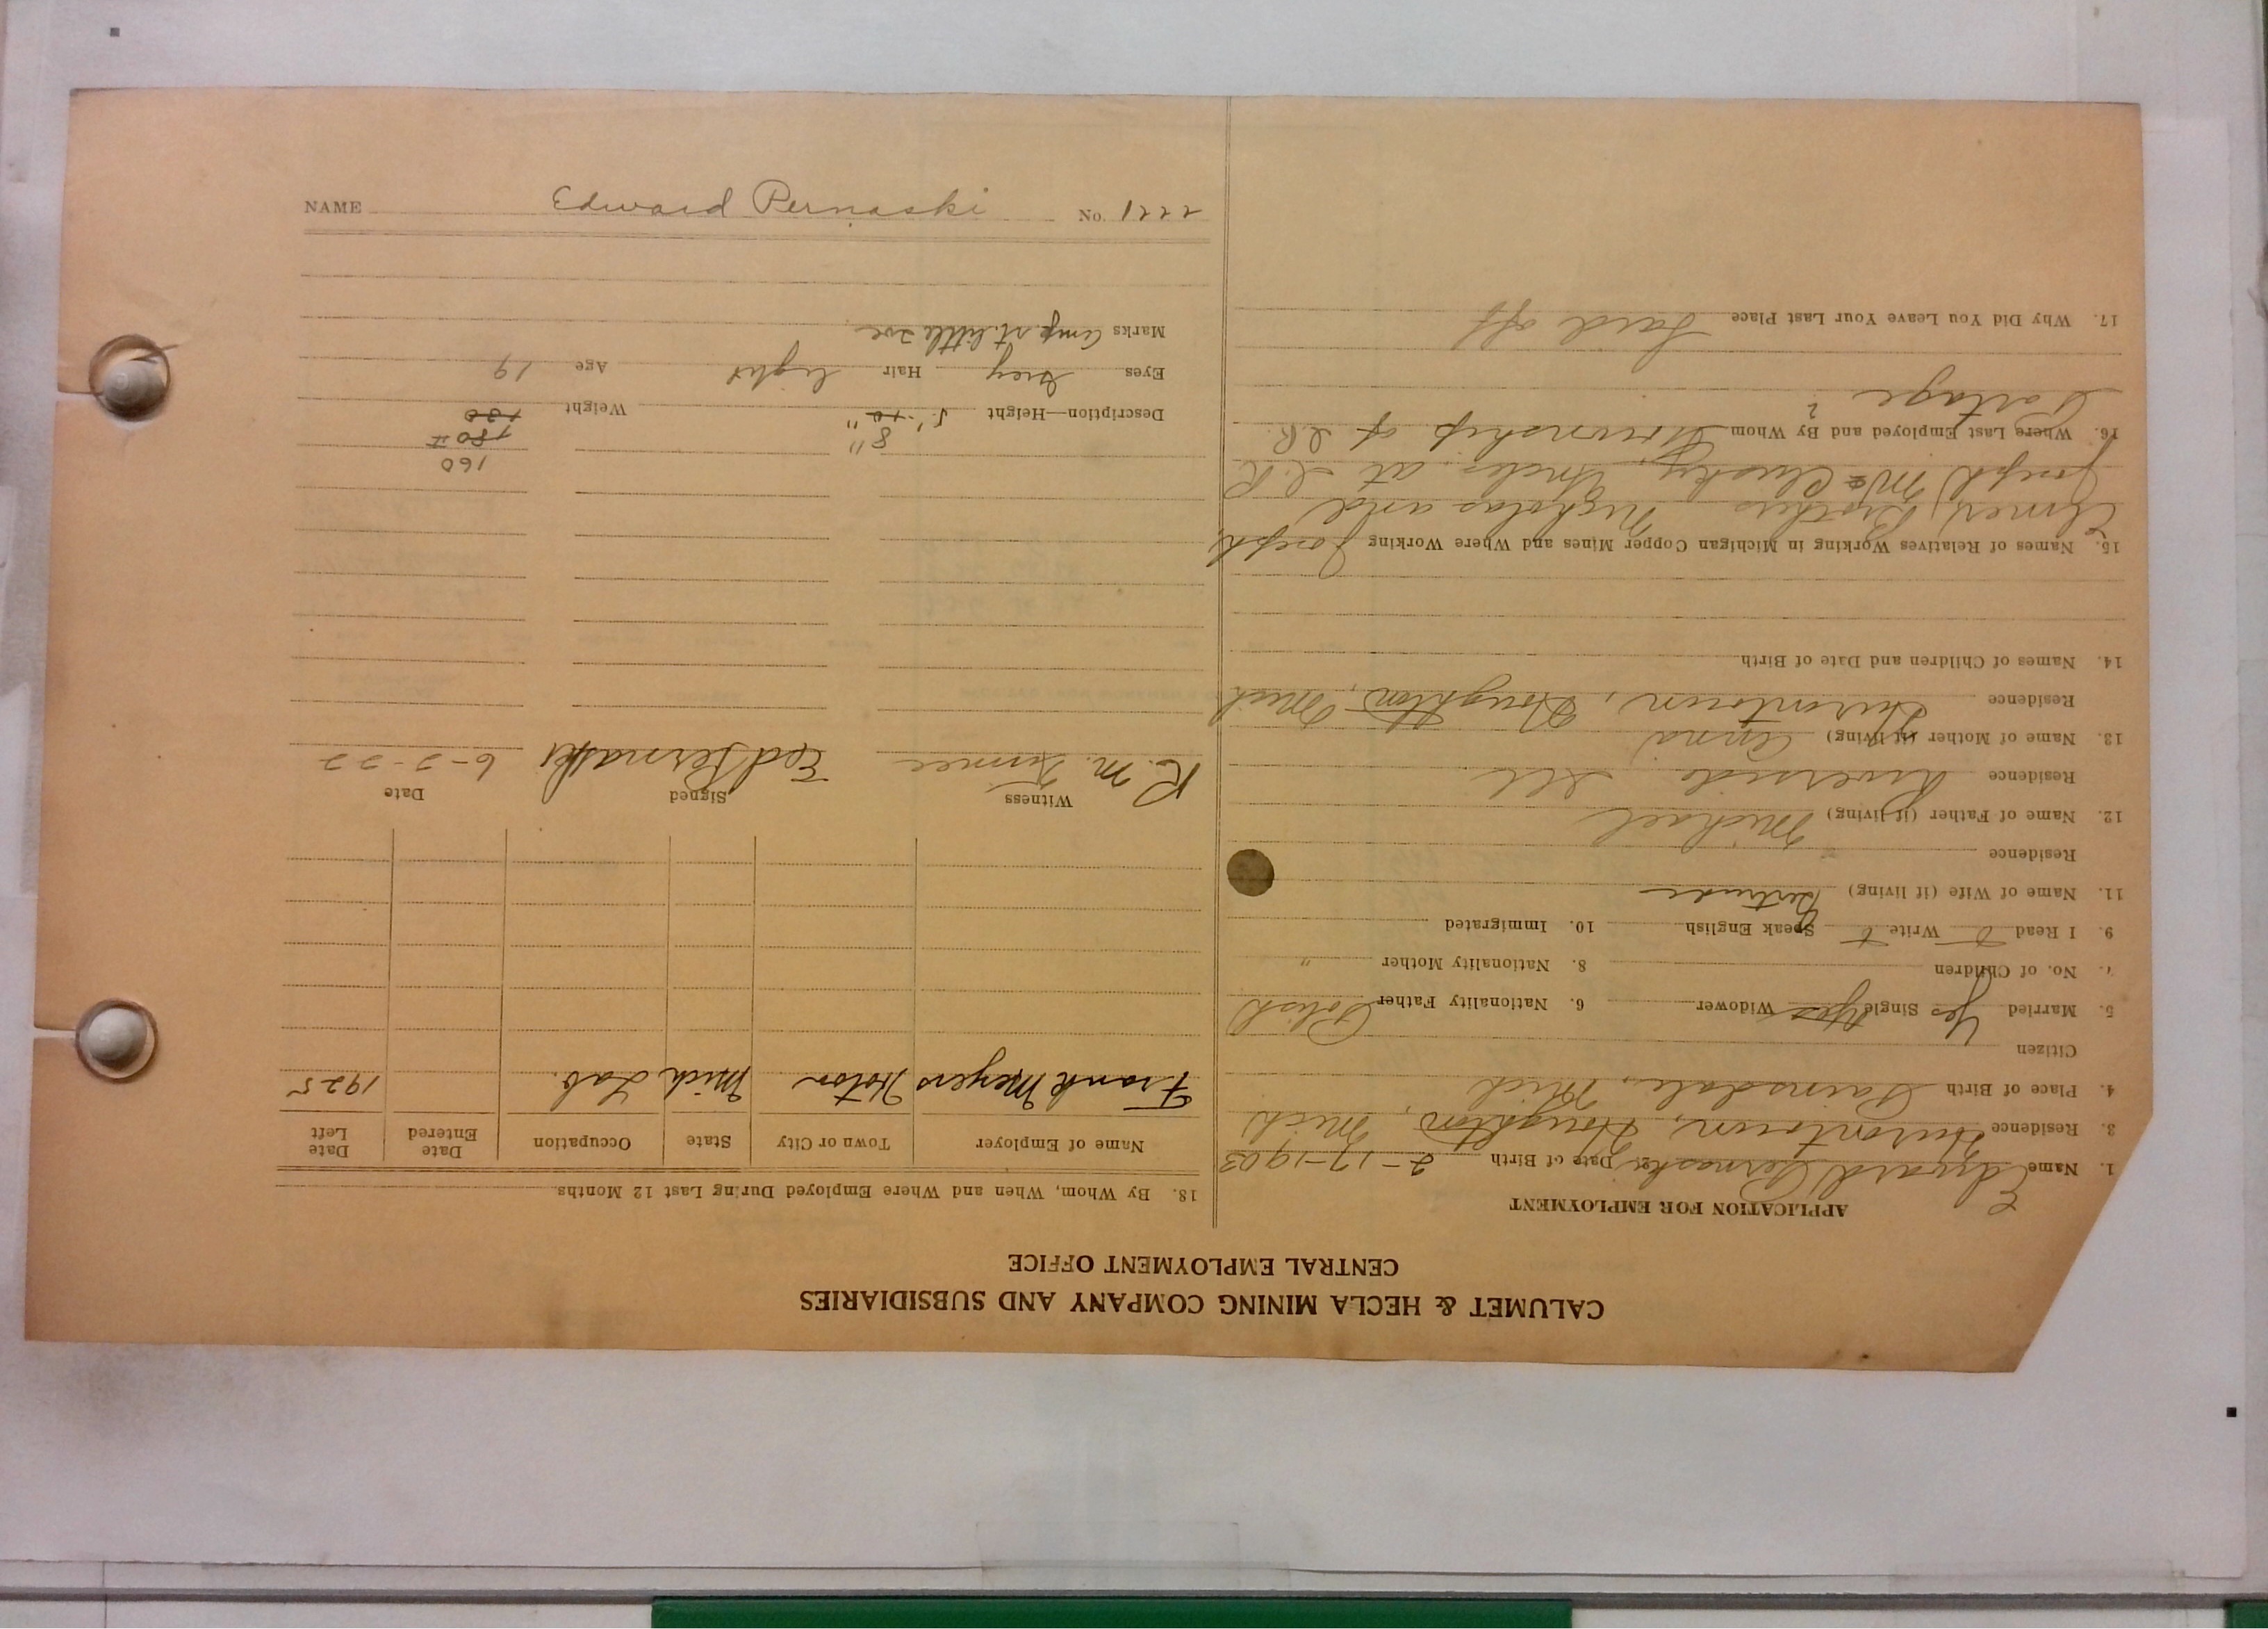 CALUMET & HECLA MINING COMPANY AND SUBSIDIARIES
CENTRAL EMPLOYMENT OFFICE
APPLICATION FOR EMPLOYMENT
1. Name Edward Pernaski 2. Date of Birth 2-17-1903
3. Residence Hurontown, Houghton, Mich
4. Place of Birth Painsdale, Mich
Citizen
5. Married Yes Single Yes Widower 6. Nationality Father Polish
7. No. of Children 8. Nationality Mother "
9. I Read Write Speak English 10. Immigrated
11. Name of Wife (if living) Gertrude
Residence
12. Name of Father (if living) Michael
Residence Riverside Ill
13. Name of Mother (if living) Anna
Residence Hurontown, Houghton, Mich
14. Names of Children and Date of Birth
15. Names of Relatives Working in Michigan Copper Mines and Where Working Joseph,
Elmer, Brothers Nicholas and
Joseph McClusky, Uncles at I.R
16. Where Last Employed and By Whom Township of
Portage ?
17. Why Did You Leave Your Last Place Laid off
18. By Whom, When and Where Employed During Last 12 Months
Name of Employer Town or City State Occupation Date Entered Date Left
Frank Meyers Hoton Mich Lab. 1925
Witness Signed Date
R. M. Ed Pernaski 6-2-22
160
8" 180 #
Description—Height 5' 10" Weight 130
Eyes Grey Hair light Age 19
Marks Amp. rt. little toe
NAME Edward Pernaski No. 1222